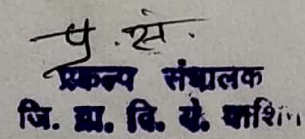 प्र. सं.
प्रकल्प संचालक
जि. ग्रा. वि. यं. वाशिम